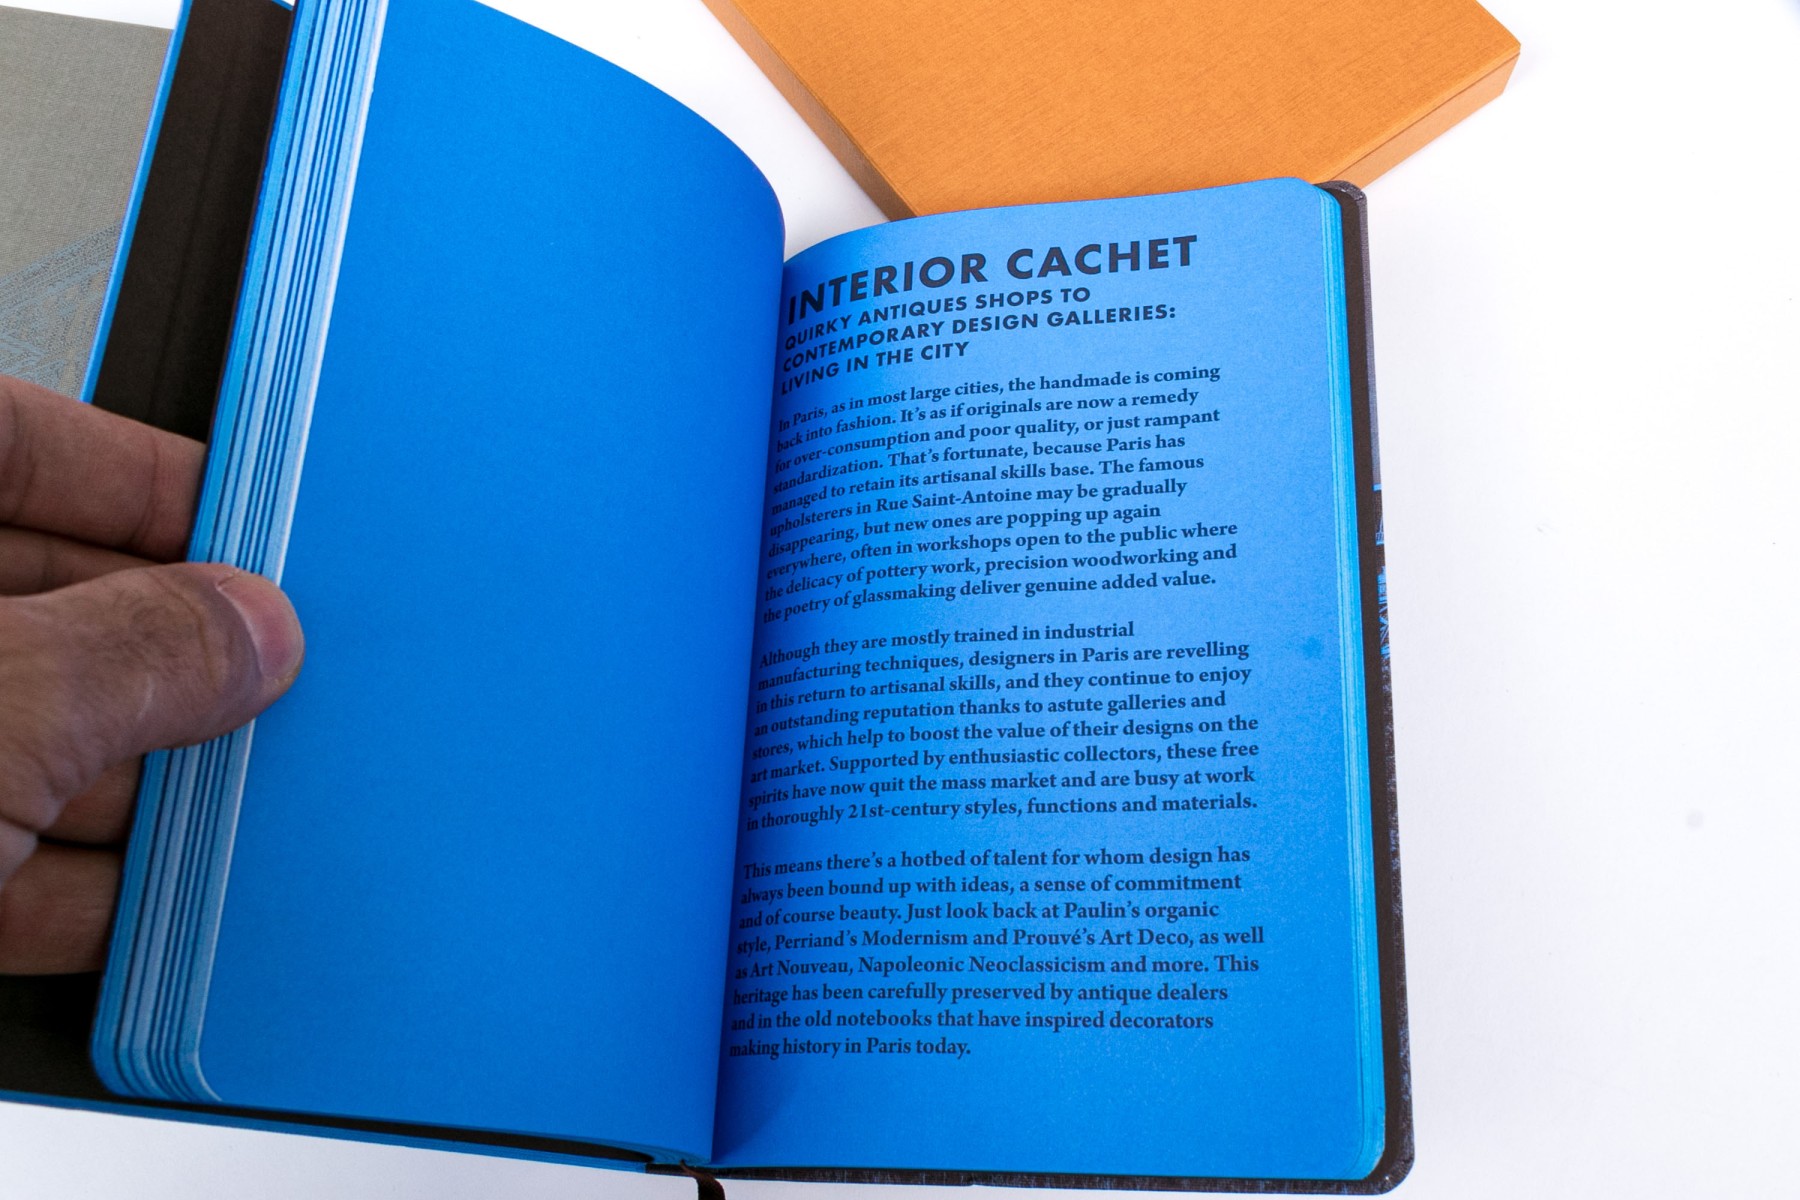 INTERIOR CACHET
QUIRKY ANTIQUES SHOPS TO
CONTEMPORARY DESIGN GALLERIES:
LIVING IN THE CITY
In Paris, as in most large cities, the handmade is coming
back into fashion. It's as if originals are now a remedy
for over-consumption and poor quality, or just rampant
standardization. That's fortunate, because Paris has
managed to retain its artisanal skills base. The famous
upholsterers in Rue Saint-Antoine may be gradually
disappearing, but new ones are popping up again
everywhere, often in workshops open to the public where
the delicacy of pottery work, precision woodworking and
the poetry of glassmaking deliver genuine added value.
Although they are mostly trained in industrial
manufacturing techniques, designers in Paris are revelling
in this return to artisanal skills, and they continue to enjoy
an outstanding reputation thanks to astute galleries and
stores, which help to boost the value of their designs on the
art market. Supported by enthusiastic collectors, these free
spirits have now quit the mass market and are busy at work
in thoroughly 21st-century styles, functions and materials.
This means there's a hotbed of talent for whom design has
always been bound up with ideas, a sense of commitment
and of course beauty. Just look back at Paulin's organic
style, Perriand's Modernism and Prouvé's Art Deco, as well
as Art Nouveau, Napoleonic Neoclassicism and more. This
heritage has been carefully preserved by antique dealers
and in the old notebooks that have inspired decorators
making history in Paris today.